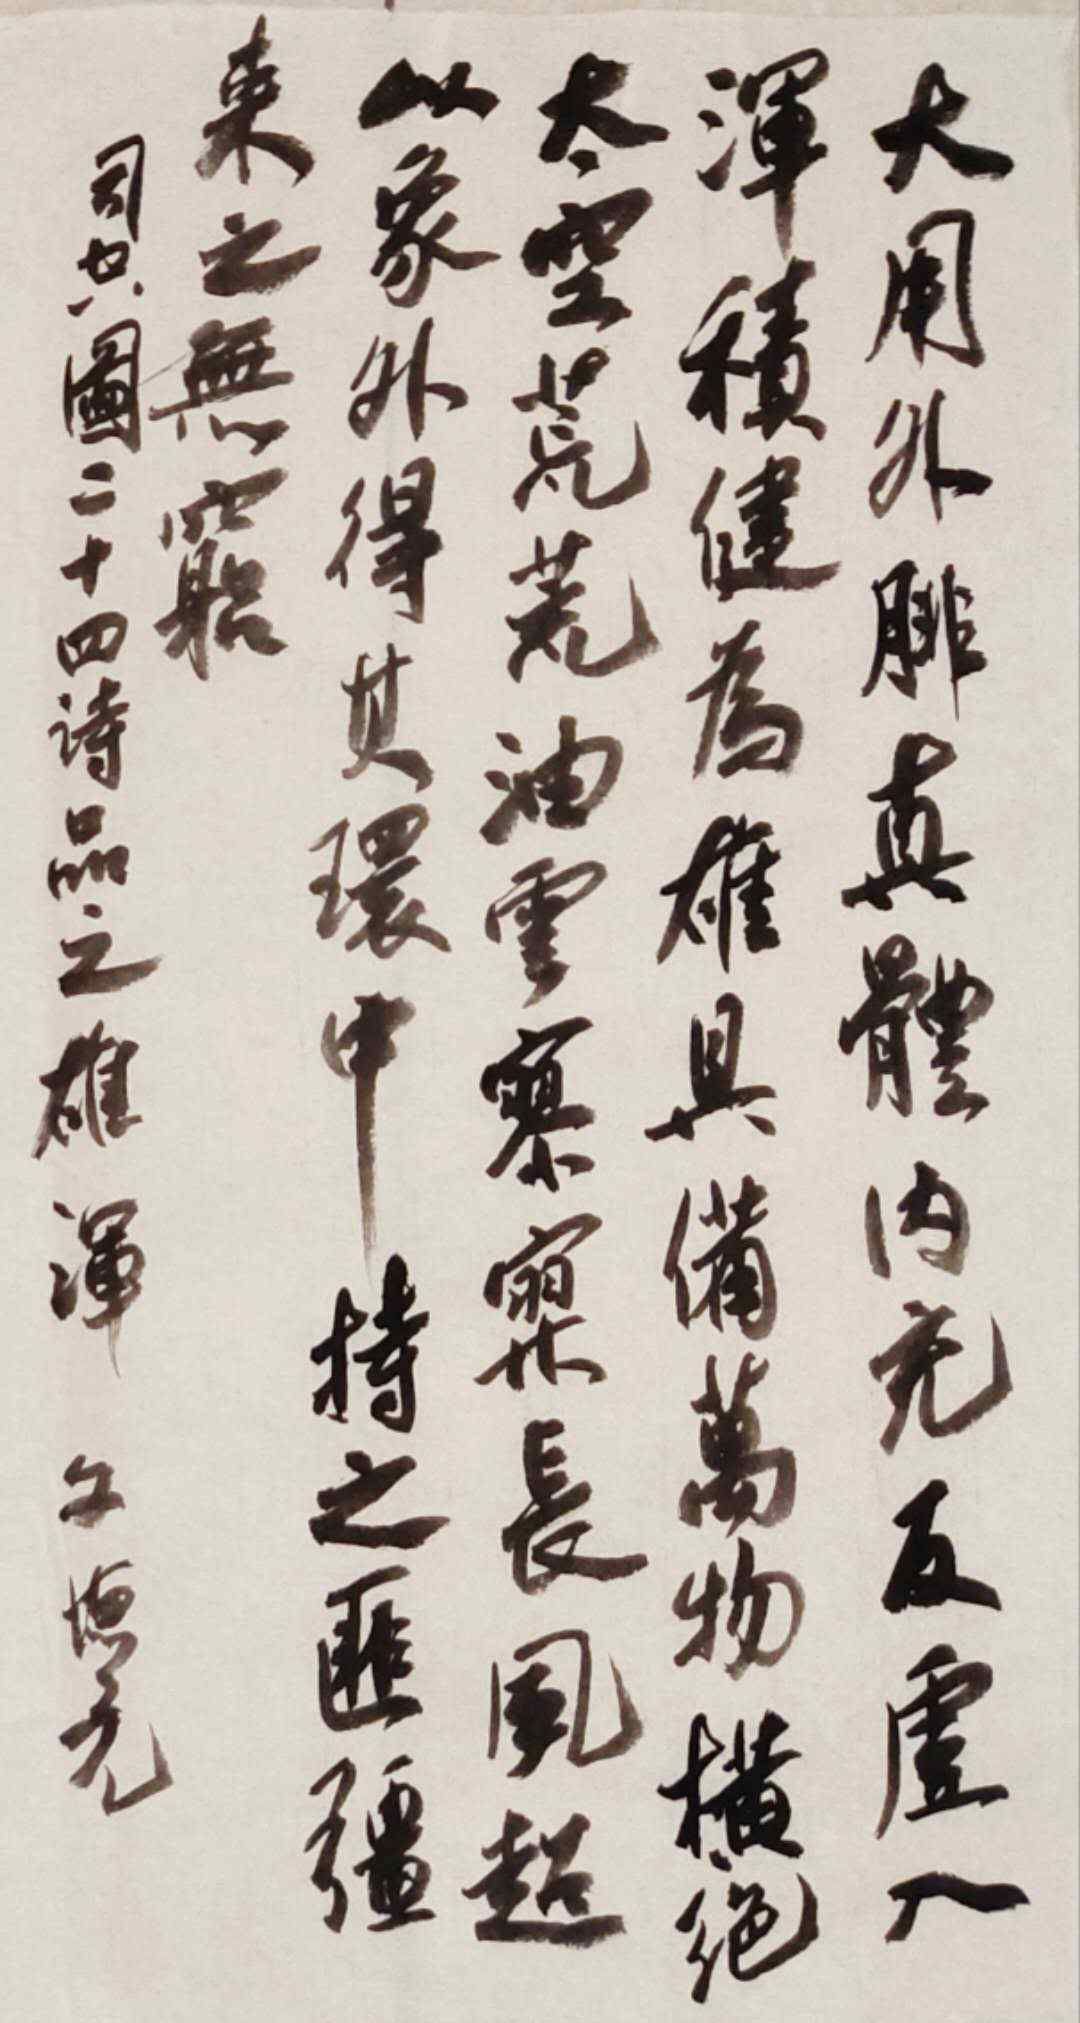 大用外腓真體内充反虛入
渾積健為雄具備萬物橫絕
太空荒荒油雲寥寥長風超
以象外得其環中持之匪彊
来之無竆
司空圖二十四詩品之雄渾 文元